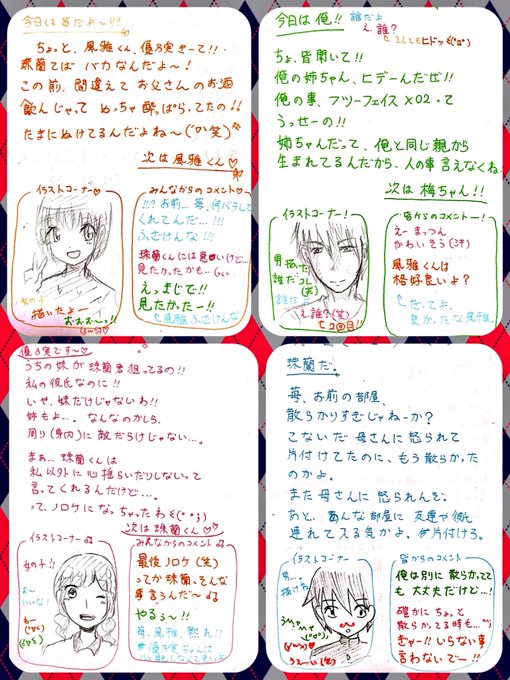 今日は苺だよ〜!!
ちょっと、風雅くん、優乃実きーて!!
珠蘭てば バカなんだよ〜!
この前、間違えて お父さんのお酒
飲んじゃって めっちゃ酔っぱらってたの!!
たまにぬけてるんだよね〜
次は風雅くん♡
イラストコーナー♡
描いたよー
みんなからのコメント♡
!!? お前…苺、何バラして
くれてんだ…!!!
ふざけんな!!
珠蘭くんには悪いけど…
見たかったかも…
えっまじで!!
見たかったー!!
風雅 ふざけんな
今日は俺!! 誰だよ
え、誰?
2人ともヒドッ
ちょ、皆聞いて!!
俺の姉ちゃん、ヒデーんだぜ!!
俺の事、フツーフェイス×02って
うっせーの!!
姉ちゃんだって、俺と同じ親から
生まれてるんだから、人の事言えなくね
次は梅ちゃん!!
イラストコーナー!
男描いた
誰だコレ
(笑)
え、誰?(笑)
2回目!!
皆からのコメント!
えー まっつん
かわいそう(汗)
風雅くんは
格好良いよ?
だってよ、
良かったな風雅。
優乃実です〜♡
うちの妹が珠蘭君狙ってるの!!
私の彼氏なのに!!
いや、妹だけじゃないわ!!
姉もよ…。 なんなのかしら、
周り(身内)に敵だらけじゃない…。
まぁ… 珠蘭くんは
私以外に心揺らいだりしないって
言ってくれるんだけど…。
って、ノロケになっちゃったわ
次は珠蘭くん♡
イラストコーナー♫
女の子!!
お〜
いいな!
みんなからのコメント♫
最後ノロケ(笑)
ってか珠蘭、そんな
事言うんだ〜♫
やるぅ〜!!
苺、風雅、黙れ!!
珠蘭だ。
苺、お前の部屋、
散らかりすぎじゃねーか?
こないだ母さんに怒られて
片付けてたのに、もう散らかった
のかよ。
また母さんに怒られんぞ。
あと、あんな部屋に友達や彼氏
連れてくる気かよ。片付けろ。
イラストコーナー
男…
描けね
うぇーい(笑)
皆からのコメント
俺は別に散らかってて
も大丈夫だけど!
確かにちょっと
散らかってる時も…
きゃー!! いらない事
言わないでー!!